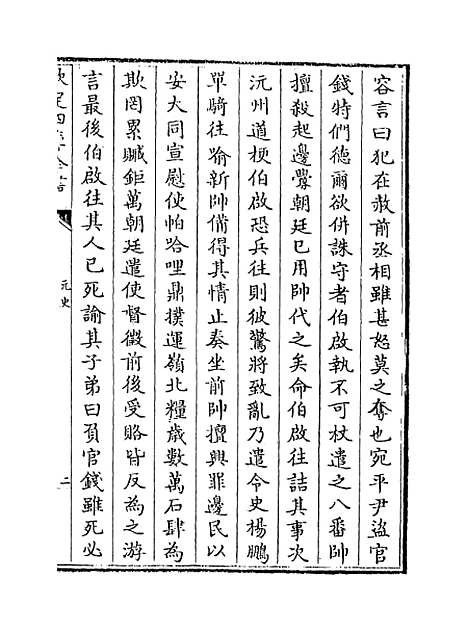 容言曰犯在赦前丞相雖甚怒莫之奪也宛平尹盜官
錢特們德爾欲併誅守者伯啟執不可杖遣之八番帥
擅殺起邊釁朝廷已用帥代之矣命伯啟往詰其事次
沅州道梗伯啟恐兵往則彼驚將致亂乃遣令史楊鵬
單騎往喻新帥備得其情止奏坐前帥擅興罪邊民以
安大同宣慰使帕哈哩鼎撲運嶺北糧歲數萬石肆為
欺罔累贓鉅萬朝廷遣使督徵前後受賂皆反為之游
言最後伯啟往其人已死諭其子弟曰負官錢雖死必
欽定四庫全書
元史
二